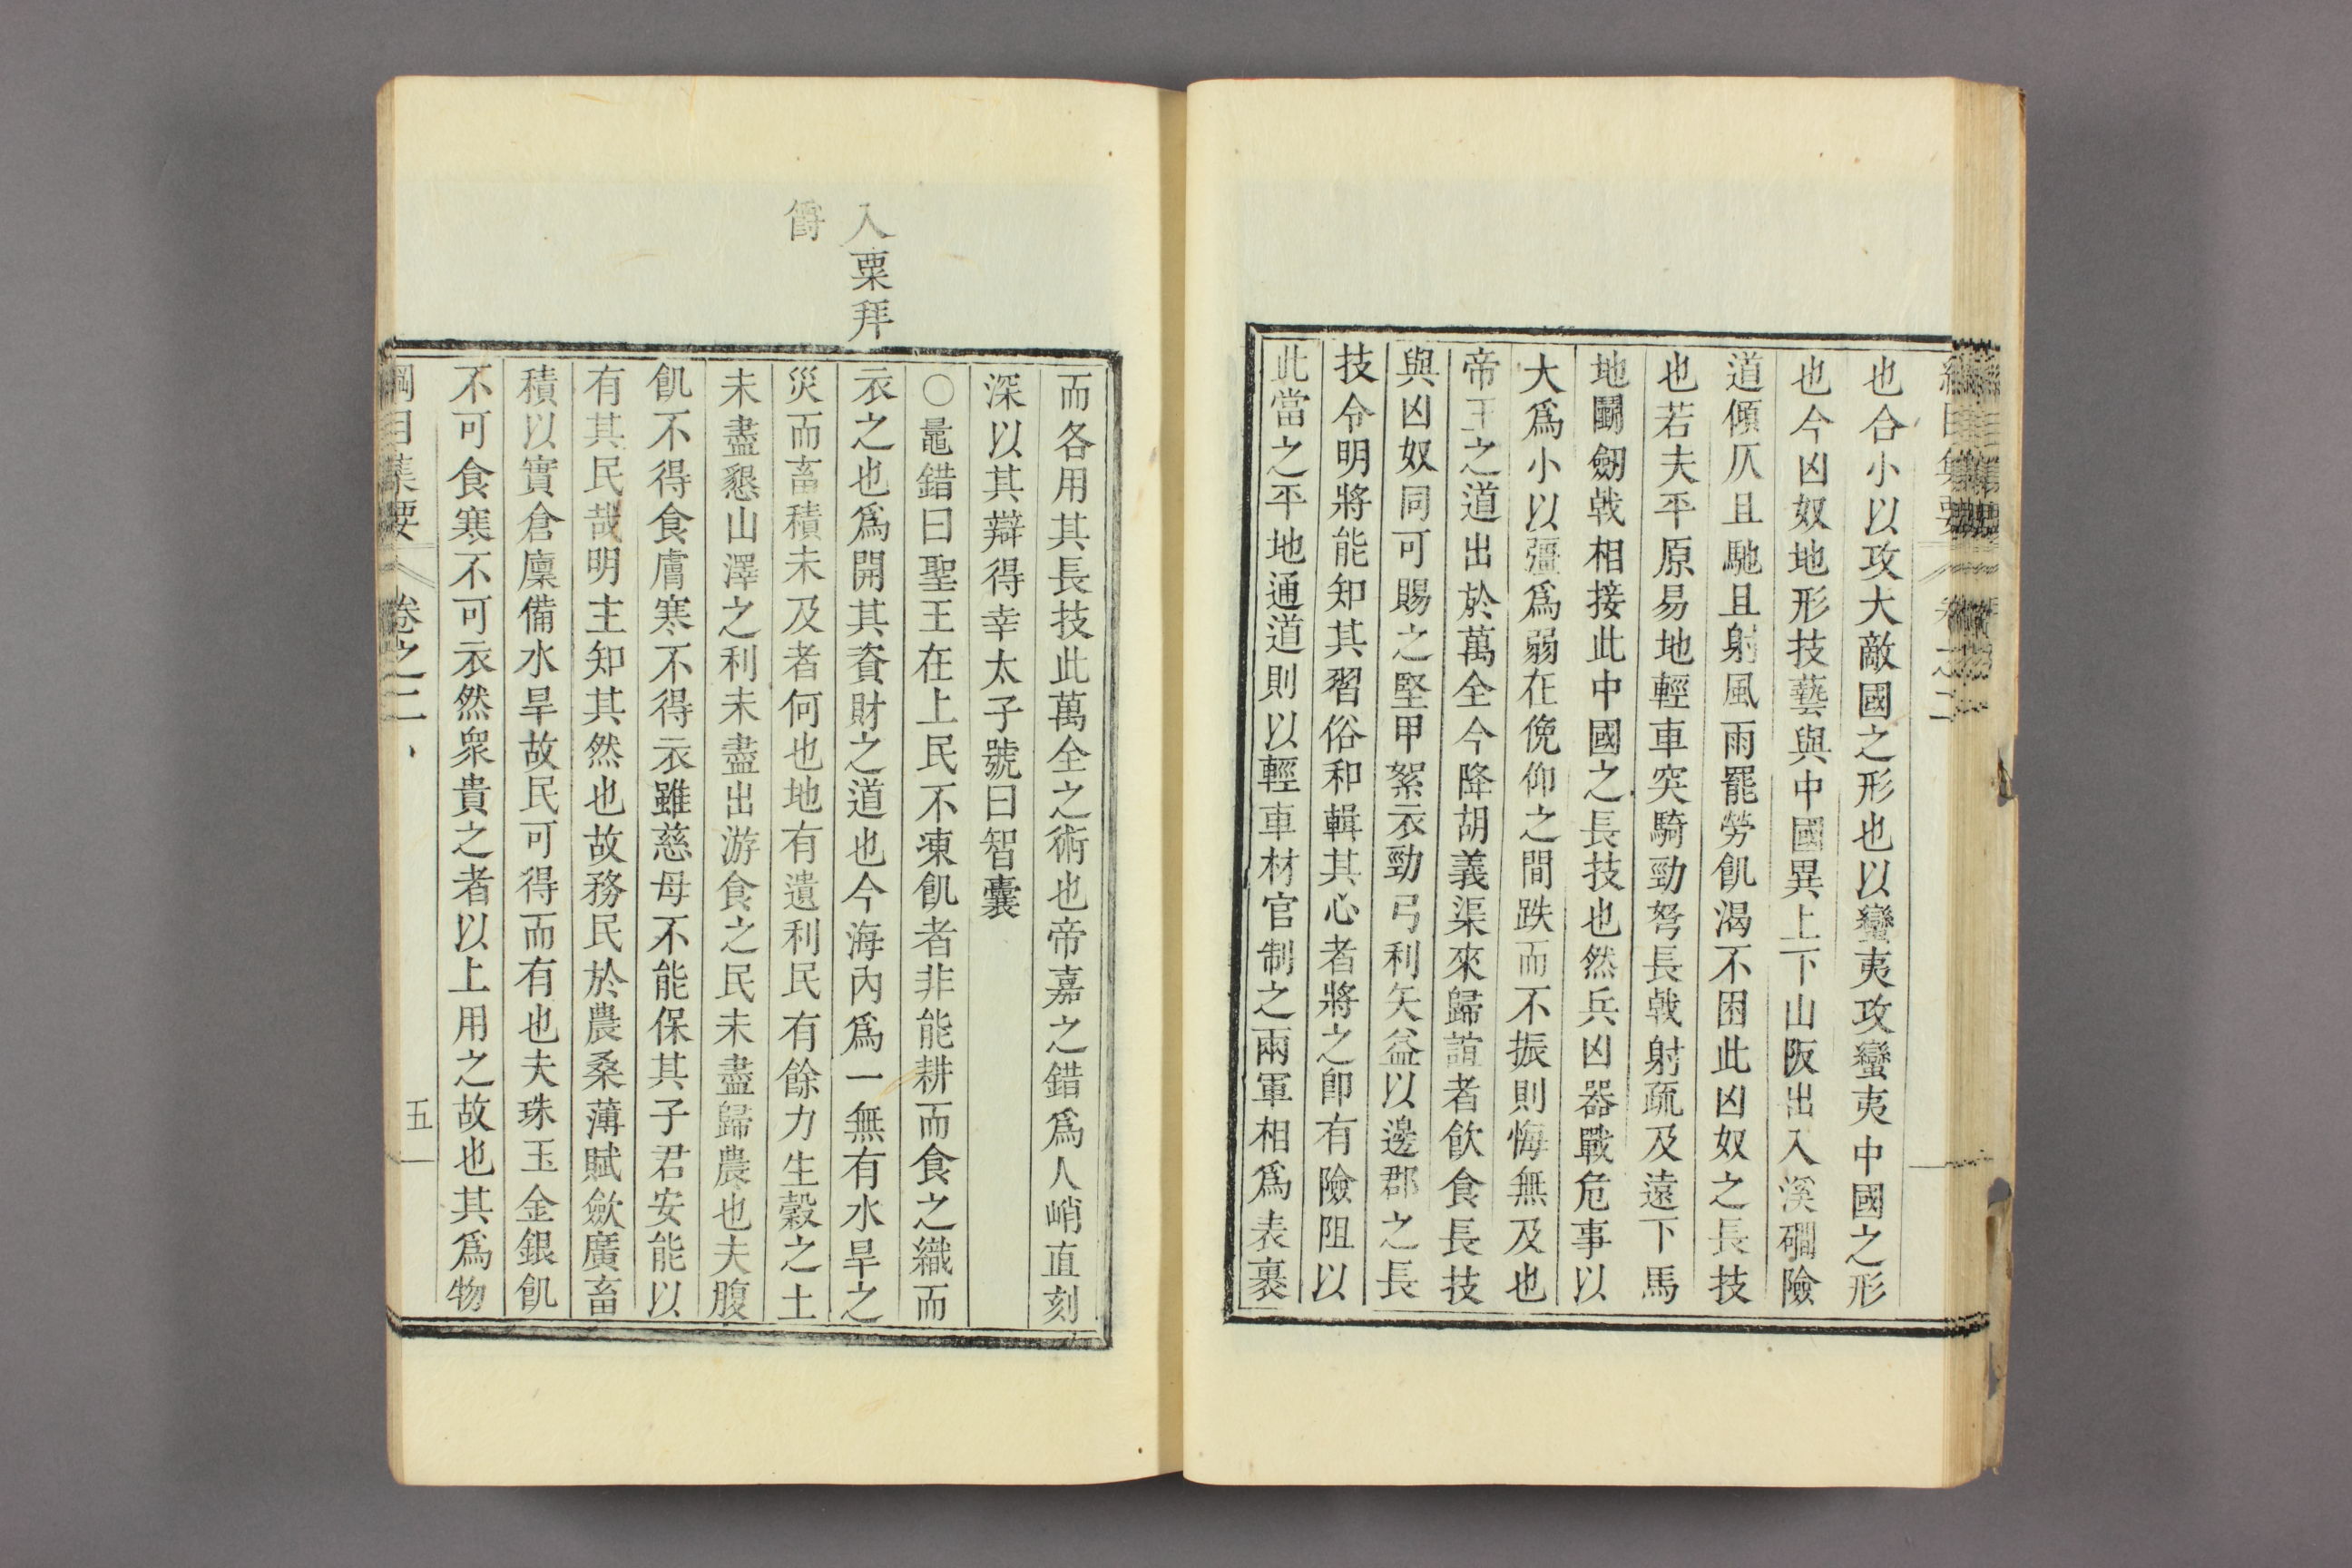 也合小以攻大敵國之形也以蠻夷攻蠻夷中國之形
也今凶奴地形技藝與中國異上下山阪出入溪磵險
道傾仄且馳且射風雨罷勞飢渴不困此凶奴之長技
也若夫平原易地輕車突騎勁弩長戟射疏及遠下馬
地鬭劒戟相接此中國之長技也然兵凶器戰危事以
大爲小以彊爲弱在俛仰之間跌而不振則悔無及也
帝王之道出於萬全今降胡義渠來歸誼者飮食長技
與凶奴同可賜之堅甲絮衣勁弓利矢益以邊郡之長
技令明將能知其習俗和輯其心者將之卽有險阻以
此當之平地通道則以輕車材官制之兩軍相爲表裏
入粟拜
爵
而各用其長技此萬全之術也帝嘉之錯爲人峭直刻
深以其辯得幸太子號曰智囊
○鼂錯曰聖王在上民不凍飢者非能耕而食之織而
衣之也爲開其資財之道也今海內爲一無有水旱之
災而畜積未及者何也地有遺利民有餘力生穀之土
未盡懇山澤之利未盡出游食之民未盡歸農也夫腹
飢不得食膚寒不得衣雖慈母不能保其子君安能以
有其民哉明主知其然也故務民於農桑薄賦歛廣畜
積以實倉廩備水旱故民可得而有也夫珠玉金銀飢
不可食寒不可衣然衆貴之者以上用之故也其爲物
綱目集要 卷之二 五